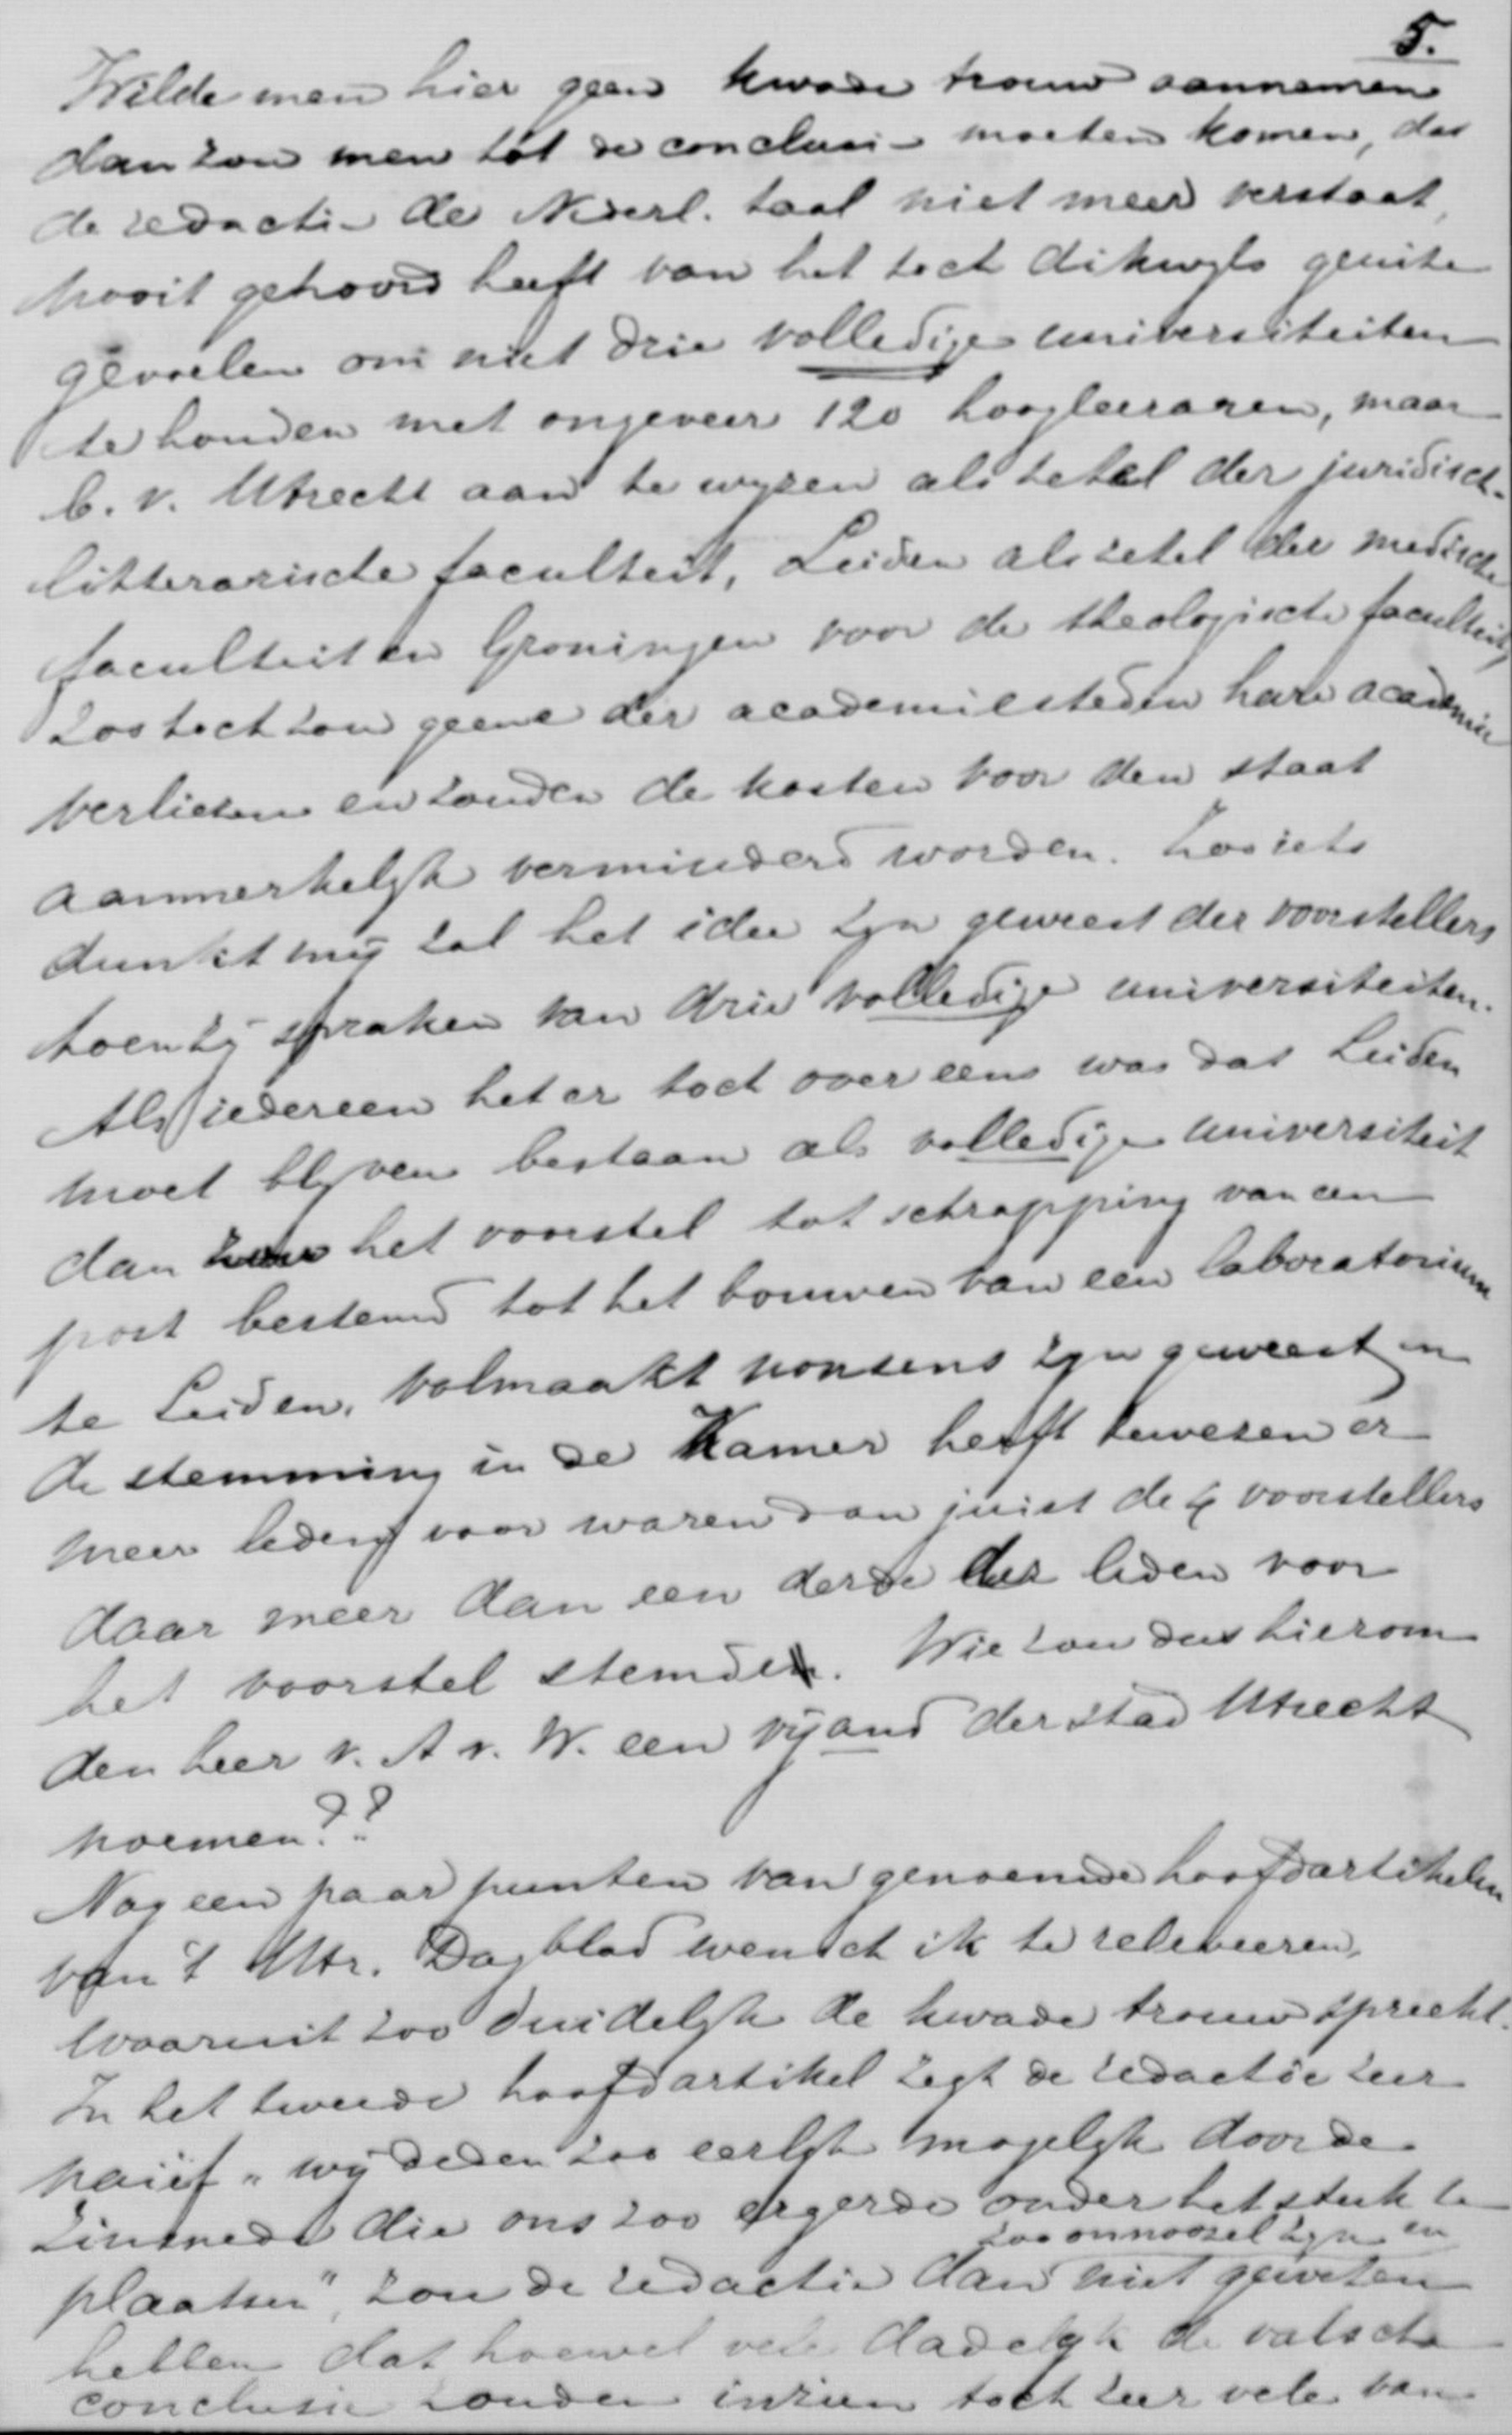 5.
Wilde men hier geen kwade trouw aannemen
dan zou men tot de conclusie moeten komen, dat
de redactie de Nederl. taal niet meer verstaat,
nooit gehoord heeft van het toch dikwyls geuite
gevoelen om niet drie volledige universiteiten
te houden met ongeveer 120 hoogleeraren, maar
b. v. Utrecht aan te wyzen als zetel der juridisch-
litterarische faculteit, Leiden als zetel der medische
faculteit en Groningen voor de theologische faculteit,
zoo toch zou geene der academiesteden hare academie
verliezen en zouden de kosten voor den staat
aanmerkelyk verminderd worden. Zoo iets
dunkt mij zal het idee zyn geweest der voorstellers
toen zij spraken van drie volledige universiteiten.
Als iedereen het er toch over eens was dat Leiden
moet blyven bestaan als volledige universiteit
dan zou het voorstel tot schrapping van een
post bestemd tot het bouwen van een laboratorium
te Leiden, volmaakt nonsens zyn geweest en
de stemming in de Kamer heeft bewezen er
meer leden voor waren dan juist de 4 voorstellers
daar meer dan een derde der leden voor
het voorstel stemde. Wie zou dus hierom
den heer v. A v. W. een vijand der stad Utrecht
noemen??
Nog een paar punten van genoemde hoofdartikelen
van 't Utr. Dagblad wensch ik te releveeren,
waaruit zoo duidelyk de kwade trouw spreekt.
In het tweede hoofdartikel zegt de redactie zeer
naïef „wij deden zoo eerlyk mogelyk door de
zinsnede die ons zoo ergerde onder het stuk te
zoo onnoozel zyn en
plaatsen", zou de redactie dan niet geweten
hebben dat hoewel vele dadelyk de valsche
conclusie zouden inzien toch zeer vele van